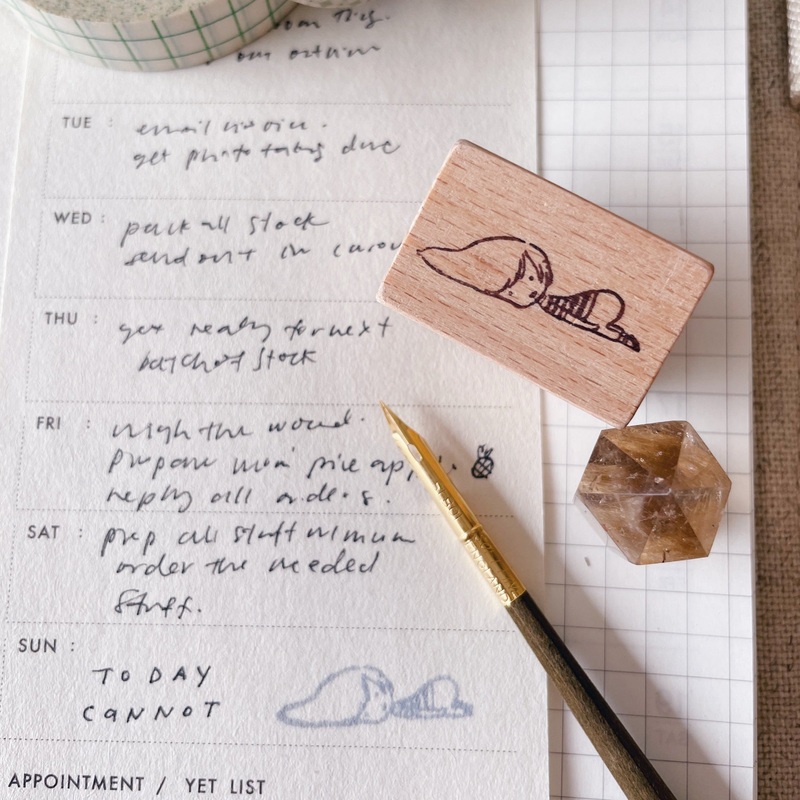 TUE :
email invoice.
get phototaking done
WED :
pack all stock
send out in
THU :
get ready for next
batch of stock
FRI :
weigh the wound.
prepare mom pine
reply all orders.
SAT :
prep all stuff
order the needed
stuff.
SUN :
TODAY
CANNOT
APPOINTMENT / YET LIST